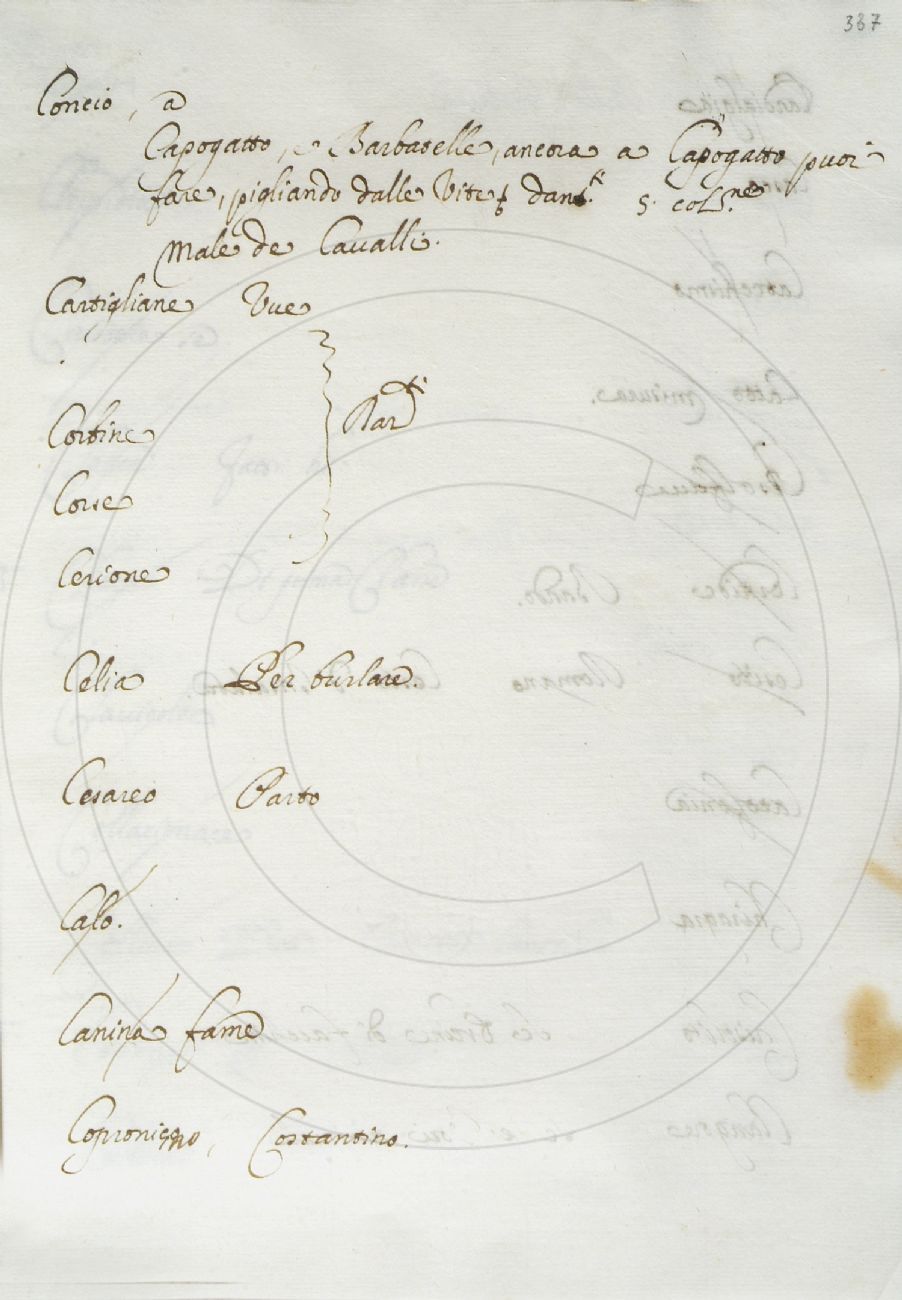 337
Concio, a
Capogatto, e Barbatelle, ancora a Capogatto puoi
fare, pigliando dalle Vite
Male de Cavalli.
Cartigliane Vue
Corbine
Corse
Cerione
Celia Per burlare.
Cesareo Parto
Calo.
Canina fame
Copronimo, Costantino.